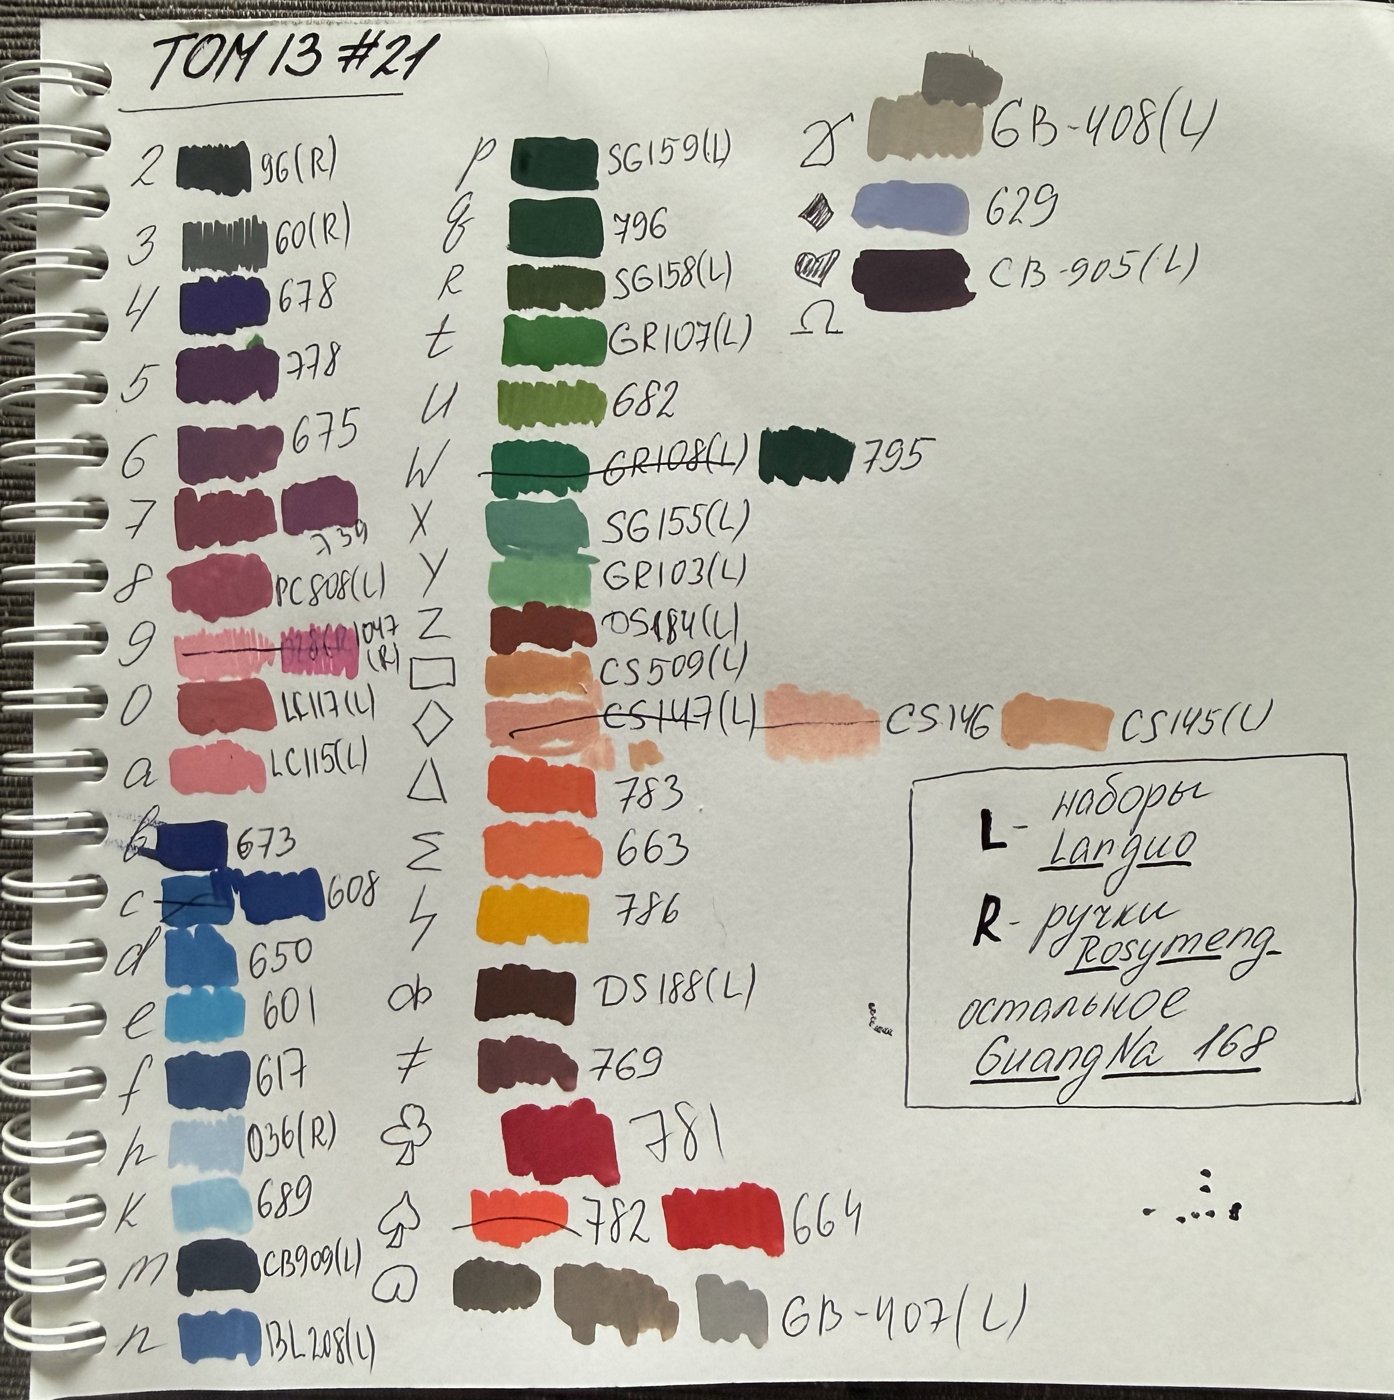 ТОМ 13 #21
2 96(R)
3 60(R)
4 678
5 778
6 675
7 739
8 PC808(L)
9 028(R) 047
(R)
0 LC117(L)
a LC115(L)
b 673
c 608
d 650
e 601
f 617
h 036(R)
k 689
m CB909(L)
n BL208(L)
p SG159(L)
q 796
R SG158(L)
t GR107(L)
u 682
W GR108(L) 795
X SG155(L)
Y GR103(L)
Z DS184(L)
□ CS509(L)
◇ CS147(L) CS146 CS145(L)
△ 783
Σ 663
ϟ 786
DS188(L)
≠ 769
♧ 781
♤ 782 664
GB-407(L)
GB-408(L)
♦ 629
♥ CB-905(L)
Ω
L- наборы
Languo
R- ручки
Rosymeng
остальное
GuangNa 168